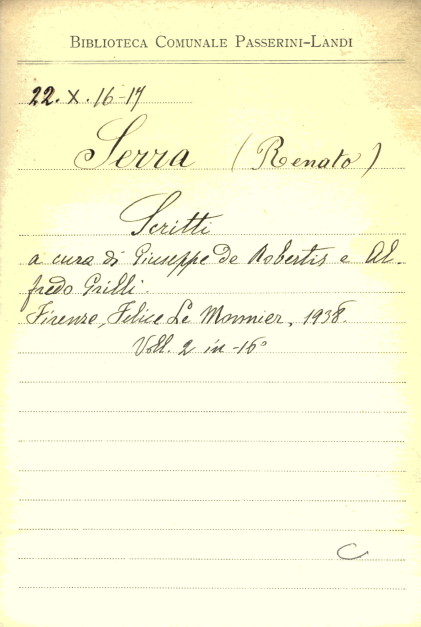 BIBLIOTECA COMUNALE PASSERINI-LANDI
22. X. 16-17
Serra (Renato)
Scritti
a cura di Giuseppe De Robertis e Al-
fredo Grilli.
Firenze, Felice Le Monnier, 1938.
Voll. 2 in-16°
C